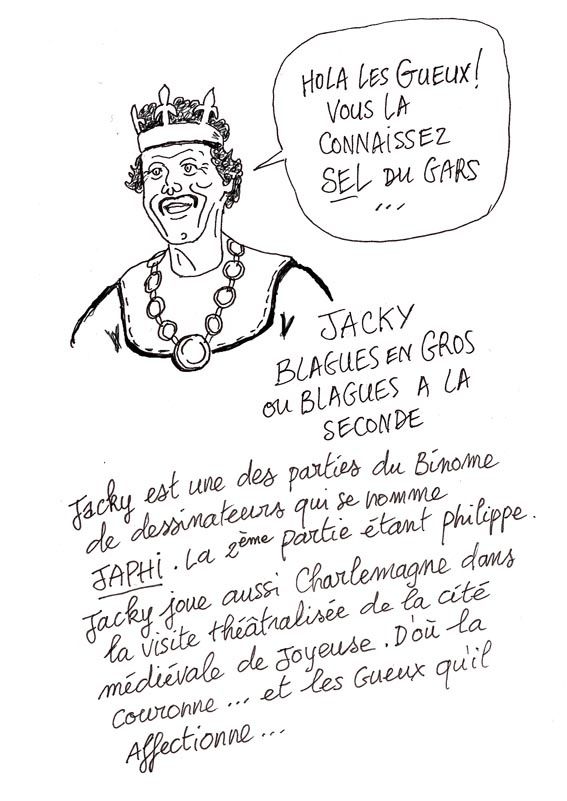 HOLA LES GUEUX!
VOUS LA
CONNAISSEZ
SEL DU GARS
...
JACKY
BLAGUES EN GROS
OU BLAGUES A LA
SECONDE
Jacky est une des parties du Binome
de dessinateurs qui se nomme
JAPHI. La 2ème partie étant philippe.
Jacky joue aussi Charlemagne dans
la visite théâtralisée de la cité
médiévale de Joyeuse. D'où la
couronne... et les Gueux qu'il
Affectionne...